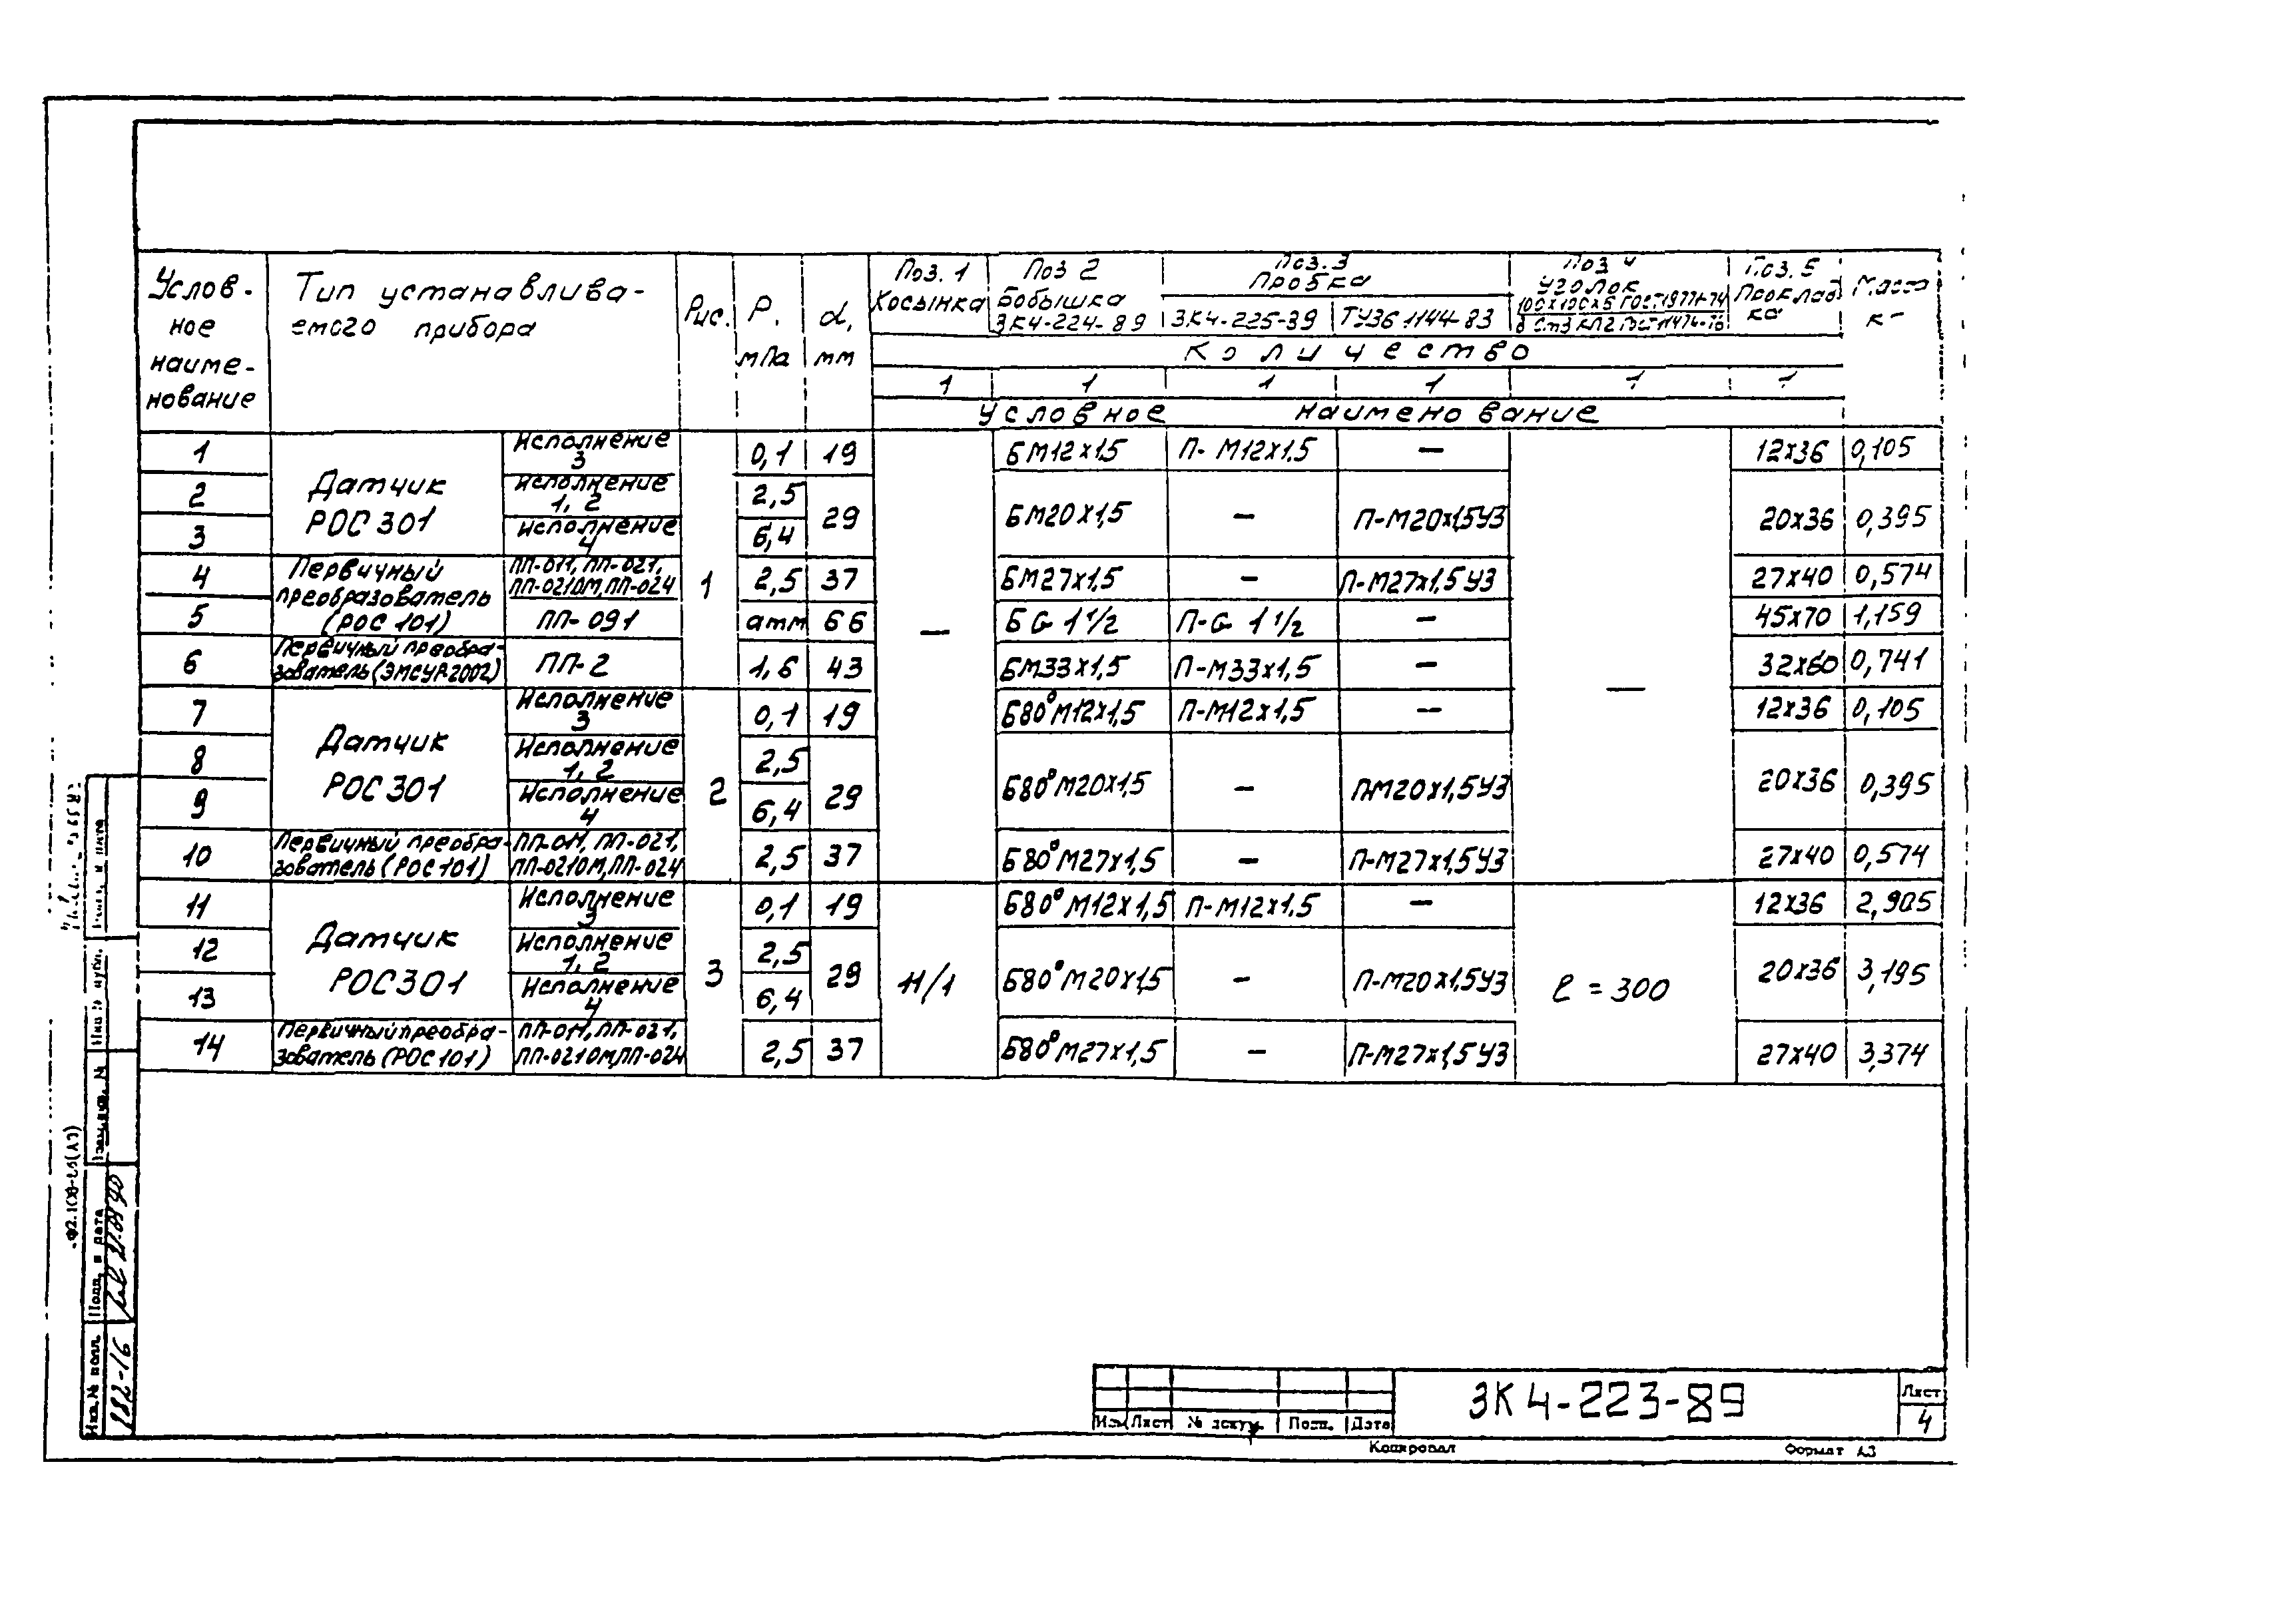 Услов-
ное
наиме-
нование
Тип устанавлива-
емого прибора
Рис.
Р.
мПа
d,
мм
Поз. 1
Косынка
Поз 2
Бобышка
ЗК4-224-89
Поз. 3
Пробка
ЗК4-225-89
ТУ36.1144-83
Поз 4
Уголок
Поз. 5
Проклад
ка
Масса
к
Количество
1 1 1 1 1 1
Условное наименование
1 Датчик РОС 301 Исполнение 3 1 0,1 19 — БМ12х1.5 П-М12х1.5 — — 12х36 0,105
2 Исполнение 1, 2 2,5 29 БМ20х1,5 — П-М20х1,5У3 20х36 0,395
3 Исполнение 4 6,4
4 Первичный преобразователь (РОС 101) ПП-011, ПП-021, ПП-021ОМ, ПП-024 2,5 37 БМ27х1,5 — П-М27х1,5У3 27х40 0,574
5 ПП-091 атм 66 Б G 1 1/2 П-G 1 1/2 — 45х70 1,159
6 Первичный преобра-
зователь (ЭМСУР2002) ПП-2 1,6 43 БМ33х1,5 П-М33х1,5 — 32х60 0,741
7 Датчик РОС 301 Исполнение 3 2 0,1 19 Б80°М12х1,5 П-М12х1,5 — 12х36 0,105
8 Исполнение 1, 2 2,5 29 Б80°М20х1,5 — П-М20х1,5У3 20х36 0,395
9 Исполнение 4 6,4
10 Первичный преобра-
зователь (РОС 101) ПП-011, ПП-021, ПП-021ОМ, ПП-024 2,5 37 Б80°М27х1,5 — П-М27х1,5У3 27х40 0,574
11 Датчик РОС 301 Исполнение 3 3 0,1 19 Н/1 Б80°М12х1,5 П-М12х1.5 — ℓ = 300 12х36 2,905
12 Исполнение 1, 2 2,5 29 Б80°М20х1,5 — П-М20х1.5У3 20х36 3,195
13 Исполнение 4 6,4
14 Первичный преобра-
зователь (РОС 101) ПП-011, ПП-021, ПП-021ОМ, ПП-024 2,5 37 Б80°М27х1,5 — П-М27х1,5У3 27х40 3,374
Взам. инв. №
Подп. и дата
Инв. № подл.
282-16
Изм Лист № докум. Подп. Дата
ЗК4-223-89
Лист
4
Копировал
Формат А3